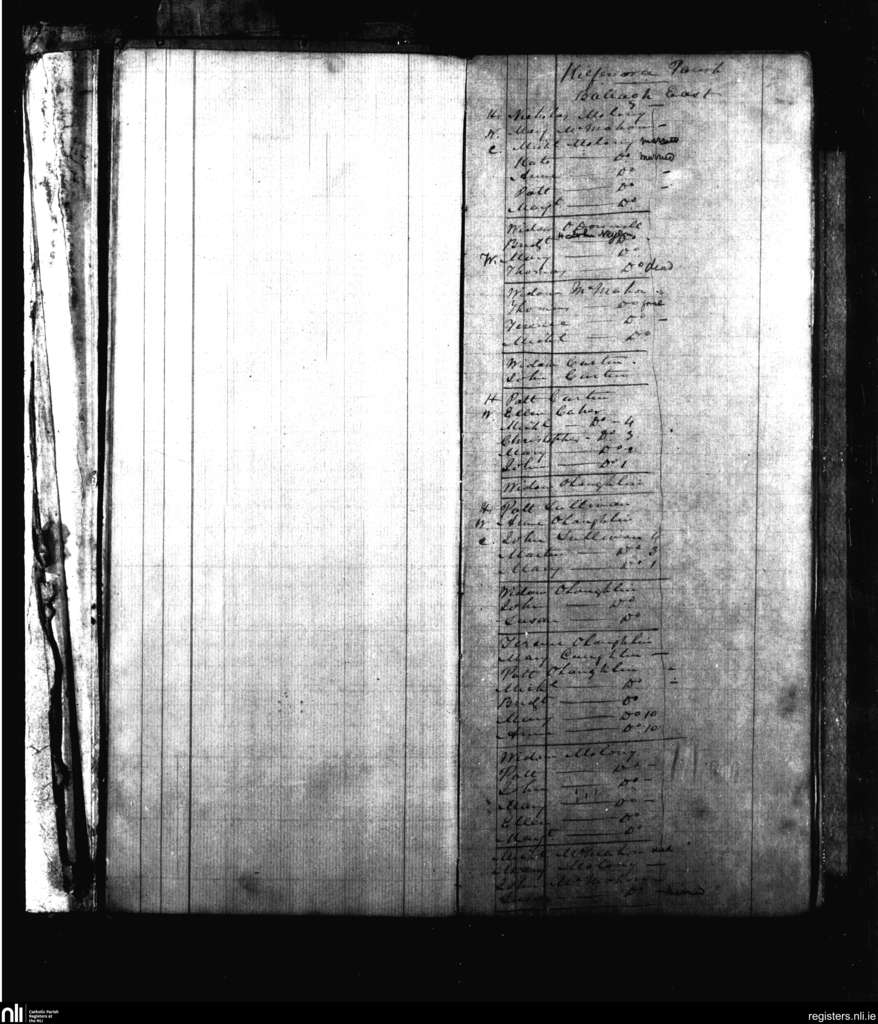 Kilfenora Parish
Ballagh East
H. Nicholas Molony
W. Mary McMahon
C. Michl Molony married
Kate Do married
Anne Do
Patt Do
Margt Do
Widow
Bridt
W. Mary Do
Thomas Do dead
Widow McMahon
Thomas Do
Terence Do
Michl Do
Widow Curtin
John Curtin
H Patt Curtin
W Ellen Caher
Michl Do 4
Christopher Do 3
Mary Do 2
John Do 1
Widow OLaughlin
H. Patt Sullivan
W. Anne OLaughlin
C. John Sullivan 4
Martin Do 3
Mary Do 1
Widow OLaughlin
John Do
Susan Do
Terence OLaughlin
Mary
Patt OLaughlin
Michl Do
Bridt Do
Mary Do 10
Anne Do 10
Widow Molony
Patt Do
John Do
Mary Do
Ellen Do
Margt Do
Michl McMahon
Mary Molony
John McMahon
Susan Do married
nli
Catholic Parish
Registers at
the NLI
registers.nli.ie